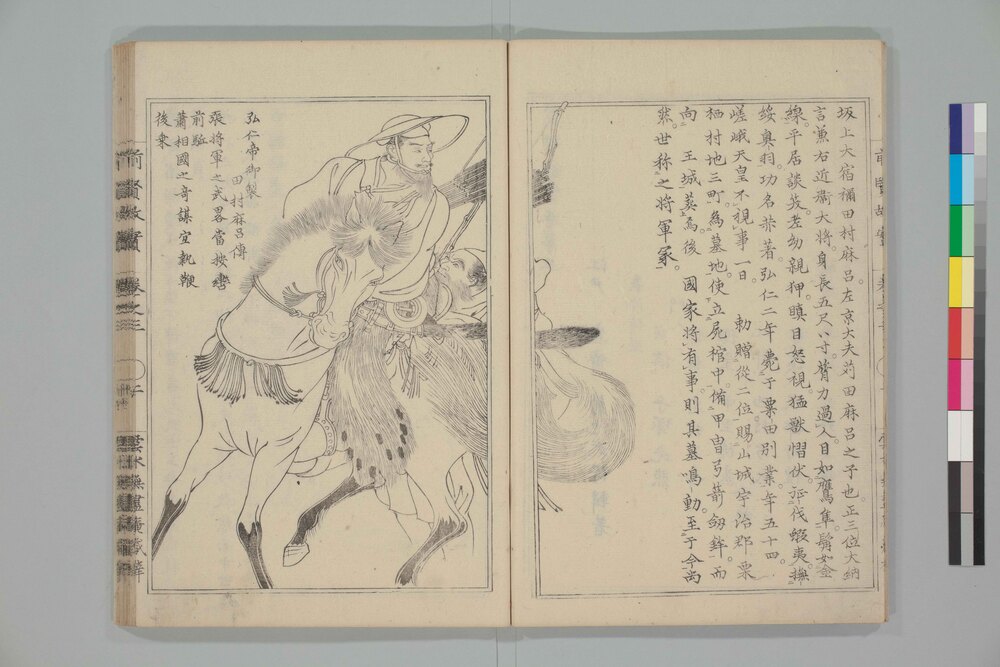 坂上大宿禰田村麻呂左京大夫苅田麻呂之子也。正三位大納
言兼右近衞大将。身長五尺八寸。膂力過人。目如鷹隼。鬚如金
線。平居談笑。老幼親狎。瞋目怒視。猛獣慴伏。征伐蝦夷。撫
綏奥羽。功名甚著。弘仁二年薨于粟田別業。年五十四。
嵯峨天皇不視事一日。勅贈從二位。賜山城宇治郡栗
栖村地三町為墓地。使立屍棺中備甲冑弓箭劔鉾。而
向王城葬焉。後國家将有事則其墓鳴動。至于今尚
然。世称之将軍冢。
弘仁帝御製
田村麻呂傳
張将軍之武畧當按轡
前駈
蕭相國之奇謀宜執鞭
後乗